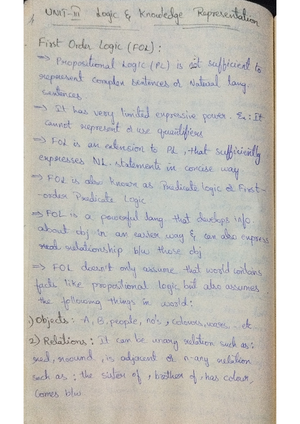 UNIT-III Logic & Knowledge Representation
First Order Logic (FOL):
⇒ Propositional Logic (PL) is not sufficient to
represent complex sentences or Natural lang.
sentences.
⇒ It has very limited expressive power. Ex: It
cannot represent or use quantifiers
⇒ FOL is an extension to PL, that sufficiently
expresses NL statements in concise way
⇒ FOL is also known as Predicate logic or First-
order Predicate Logic
⇒ FOL is a powerful lang. that develops info
about obj in an easier way & can also express
relationship b/w those obj
⇒ FOL doesn't only assume that world contains
facts like propositional logic but also assumes
the following things in world:
1) Objects: A, B, people, no's, colours, wars... etc
2) Relations: It can be unary relation such as:
red, round, is adjacent or n-any relation
such as: the sister of, brother of, has colour,
comes b/w